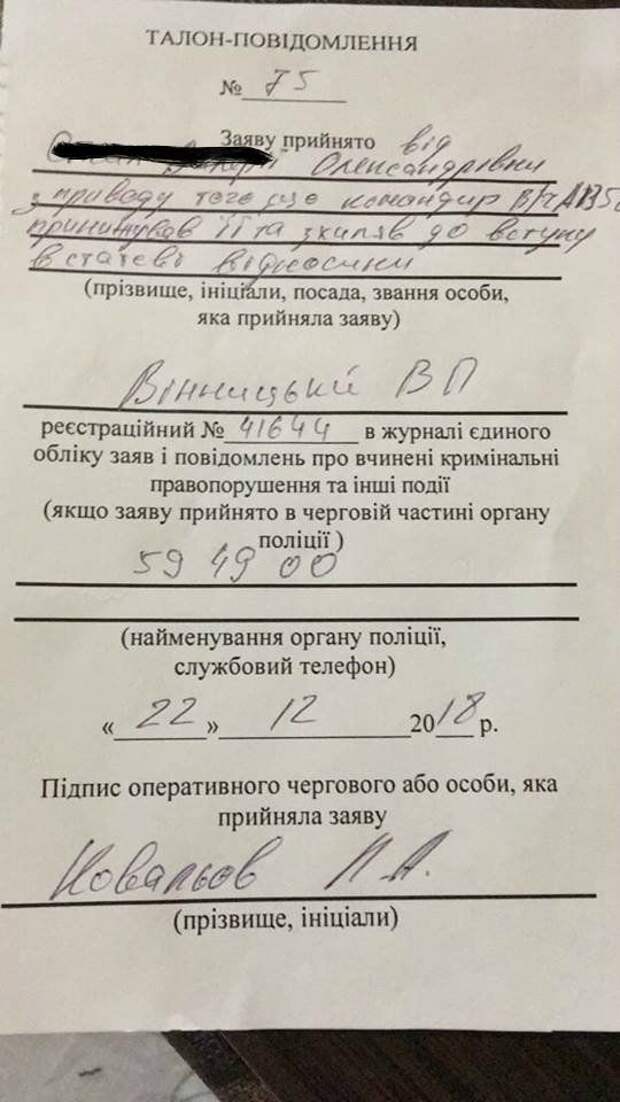 ТАЛОН-ПОВІДОМЛЕННЯ
№ 75
Заяву прийнято від
Олександрівни
з приводу того що командир В/Ч А135
принижував її та схиляв до вступу
в статеві відносини
(прізвище, ініціали, посада, звання особи,
яка прийняла заяву)
Вінницький ВП
реєстраційний № 41644 в журналі єдиного
обліку заяв і повідомлень про вчинені кримінальні
правопорушення та інші події
(якщо заяву прийнято в черговій частині органу
поліції )
59 49 00
(найменування органу поліції,
службовий телефон)
« 22 » 12 2018 р.
Підпис оперативного чергового або особи, яка
прийняла заяву
Ковальов П.А.
(прізвище, ініціали)